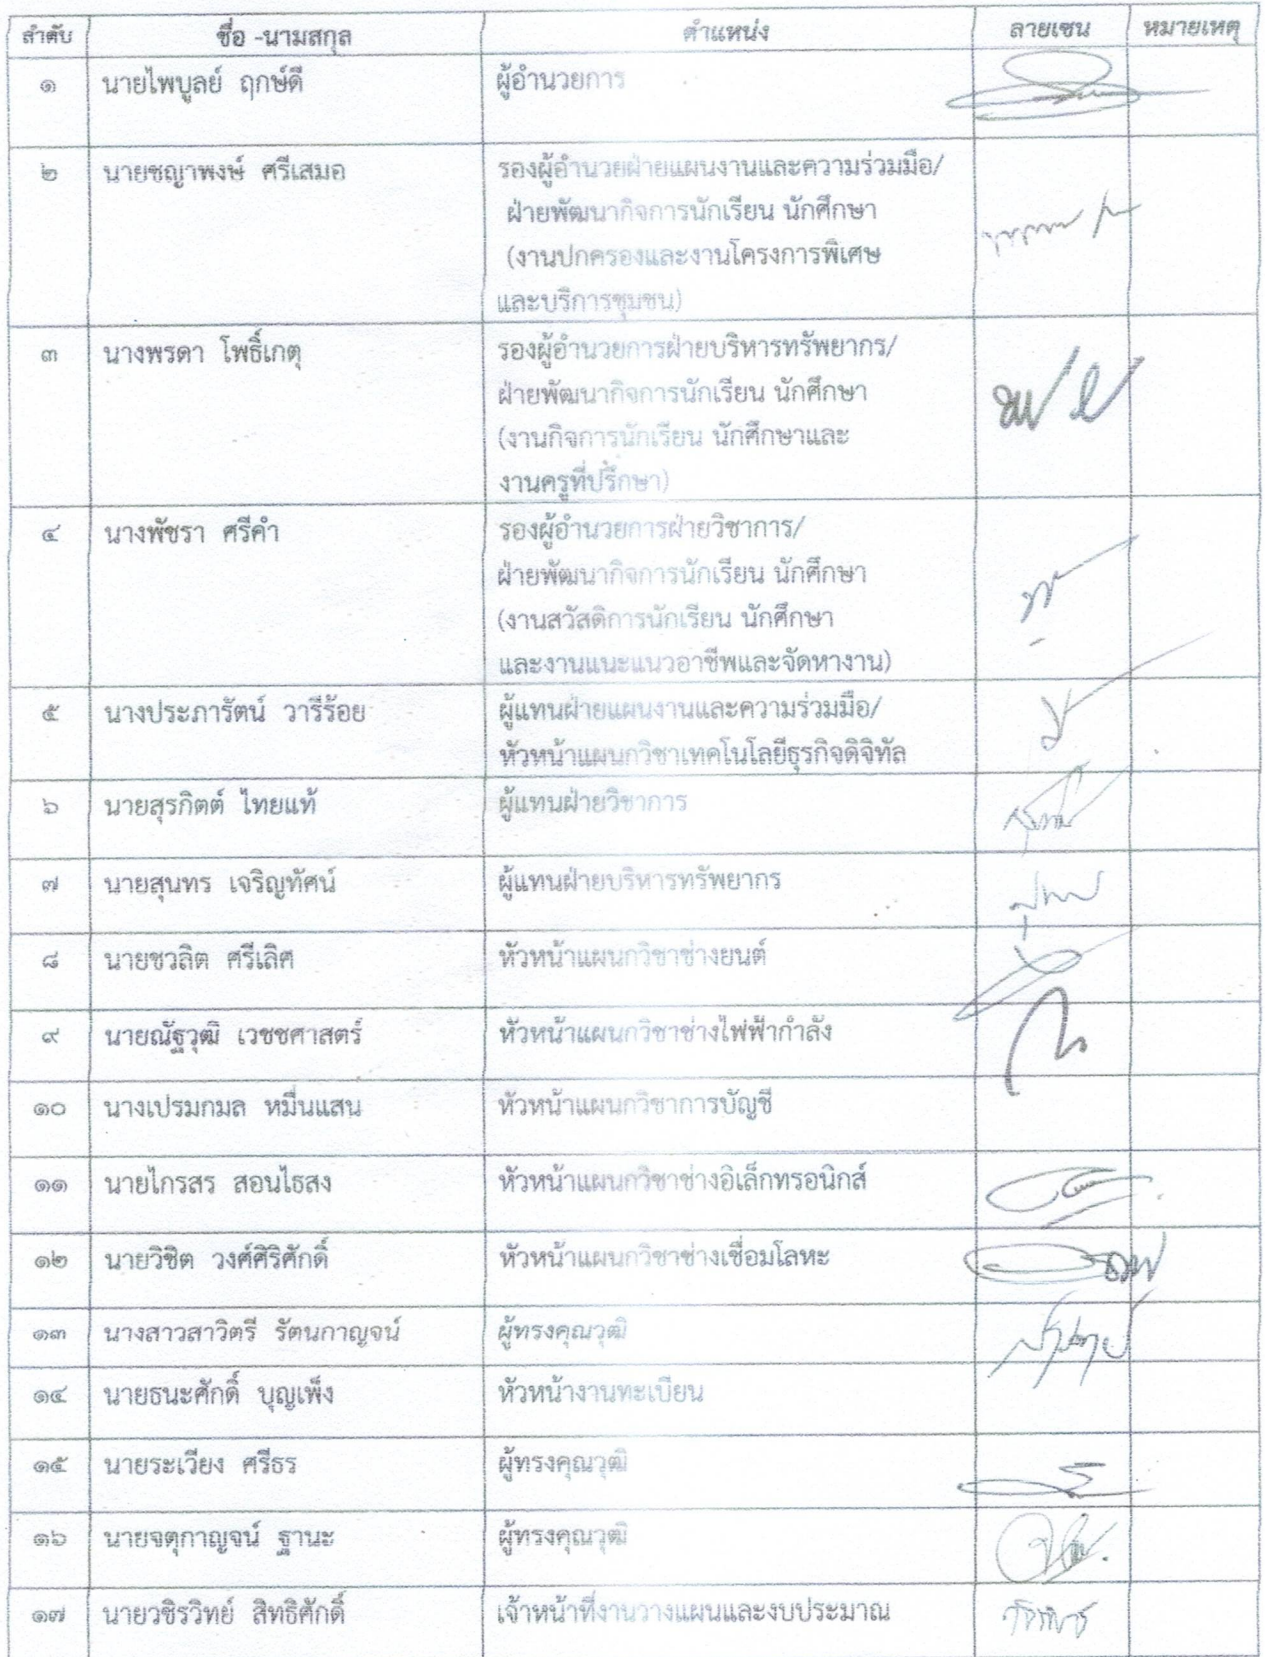 ลำดับ ชื่อ -นามสกุล ตำแหน่ง ลายเซน หมายเหตุ
๑ นายไพบูลย์ ฤกษ์ดี ผู้อำนวยการ
๒ นายชญาพงษ์ ศรีเสมอ รองผู้อำนวยฝ่ายแผนงานและความร่วมมือ/
ฝ่ายพัฒนากิจการนักเรียน นักศึกษา
(งานปกครองและงานโครงการพิเศษ
และบริการชุมชน)
๓ นางพรดา โพธิ์เกตุ รองผู้อำนวยการฝ่ายบริหารทรัพยากร/
ฝ่ายพัฒนากิจการนักเรียน นักศึกษา
(งานกิจการนักเรียน นักศึกษาและ
งานครูที่ปรึกษา)
๔ นางพัชรา ศรีคำ รองผู้อำนวยการฝ่ายวิชาการ/
ฝ่ายพัฒนากิจการนักเรียน นักศึกษา
(งานสวัสดิการนักเรียน นักศึกษา
และงานแนะแนวอาชีพและจัดหางาน)
๕ นางประภารัตน์ วารีร้อย ผู้แทนฝ่ายแผนงานและความร่วมมือ/
หัวหน้าแผนกวิชาเทคโนโลยีธุรกิจดิจิทัล
๖ นายสุรกิตต์ ไทยแท้ ผู้แทนฝ่ายวิชาการ
๗ นายสุนทร เจริญทัศน์ ผู้แทนฝ่ายบริหารทรัพยากร
๘ นายชวลิต ศรีเลิศ หัวหน้าแผนกวิชาช่างยนต์
๙ นายณัฐวุฒิ เวชชศาสตร์ หัวหน้าแผนกวิชาช่างไฟฟ้ากำลัง
๑๐ นางเปรมกมล หมื่นแสน หัวหน้าแผนกวิชาการบัญชี
๑๑ นายไกรสร สอนไธสง หัวหน้าแผนกวิชาช่างอิเล็กทรอนิกส์
๑๒ นายวิชิต วงศ์ศิริศักดิ์ หัวหน้าแผนกวิชาช่างเชื่อมโลหะ
๑๓ นางสาวสาวิตรี รัตนกาญจน์ ผู้ทรงคุณวุฒิ
๑๔ นายธนะศักดิ์ บุญเพ็ง หัวหน้างานทะเบียน
๑๕ นายระเวียง ศรีธร ผู้ทรงคุณวุฒิ
๑๖ นายจตุกาญจน์ ฐานะ ผู้ทรงคุณวุฒิ
๑๗ นายวชิรวิทย์ สิทธิศักดิ์ เจ้าหน้าที่งานวางแผนและงบประมาณ